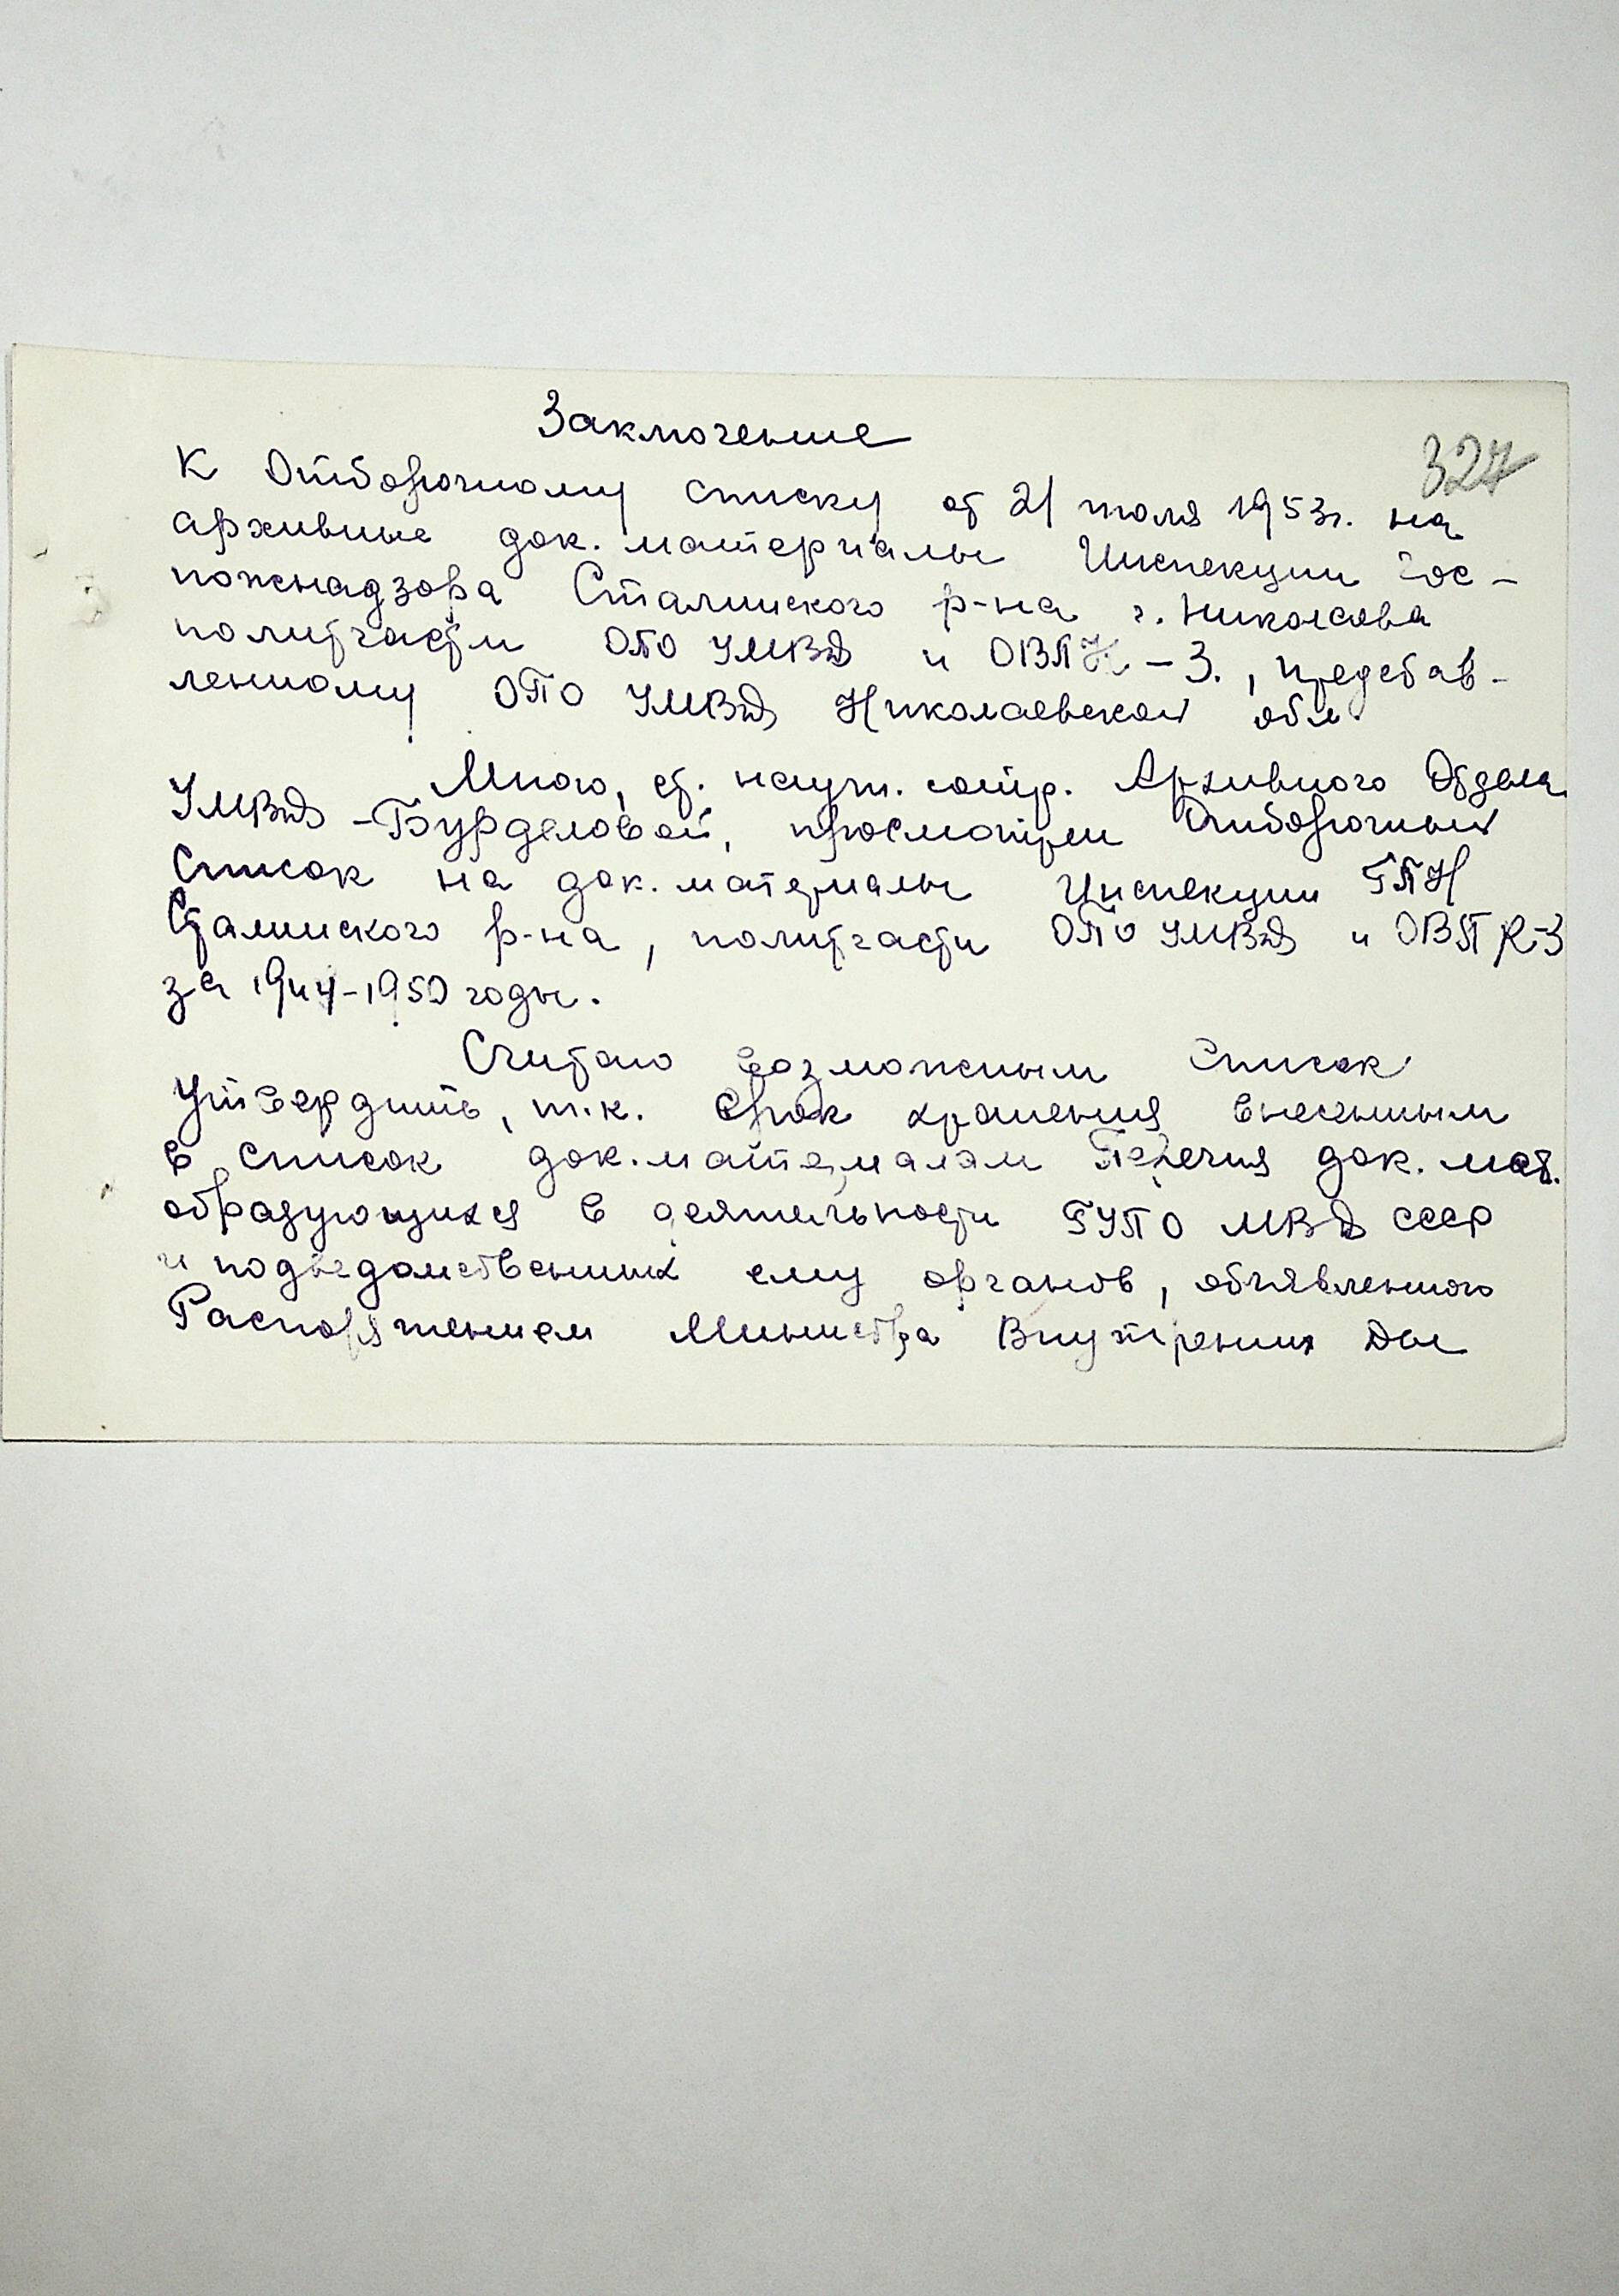 Заключение
327
К Отборочному списку от 21 июля 1953г. на
архивные док. материалы Инспекции Гос-
пожнадзора Сталинского р-на г. Николаева
политчасти ОПО УМВД и ОВПК-3., представ-
ленному ОПО УМВД Николаевской обл.
Мною, ст. научн. сотр. Архивного Отдела
УМВД - Бурделовой, просмотрен Отборочный
Список на док. материалы Инспекции ГПН
Сталинского р-на, политчасти ОПО УМВД и ОВПК-3
за 1944-1950 годы.
Считаю возможным список
Утвердить, т.к. срок хранения внесенным
в список док. материалам Перечня док. мат.
образующихся в деятельности ГУПО МВД СССР
и подведомственных ему органов, объявленного
Распоряжением Министра Внутренних Дел